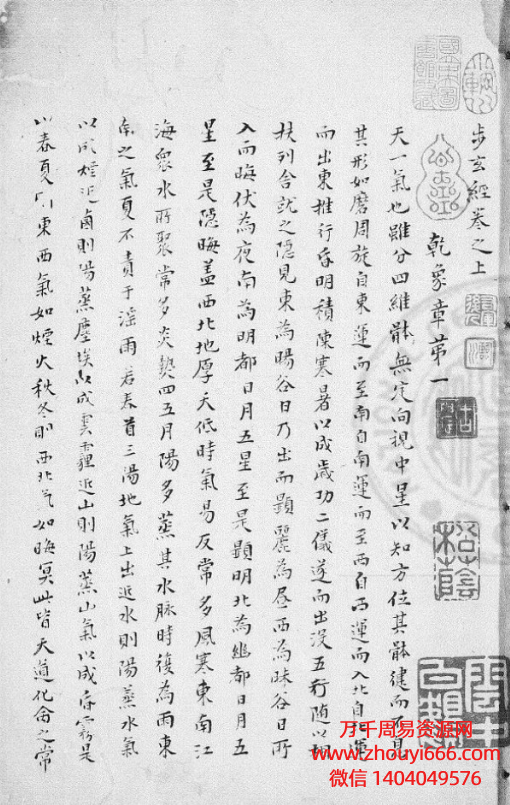 步玄經卷之上
乾象章第一
天一氣也雖分四維骵無定向視中星以知方位其骵健而不見
其形如磨周旋自東運而至南自南運而至西自西運而入北自北運
而出東推行昏明積陳寒暑以成歲功二儀遂而出沒五行隨以相
扶列舍就之隱見東為暘谷日乃出而顯麗為昼西為昧谷日所
入而晦伏為夜南為明都日月五星至是顯明北為幽都日月五
星至是隱晦蓋西北地厚天低時氣易反常多風寒東南江
海眾水所聚常多炎熱四五月陽多蒸其水脉時復為雨東
南之氣夏不責于滛雨若春首三陽地氣上出近水則陽蒸水氣
以成煙近鹵則陽蒸塵埃以成雲霾近山則陽蒸山氣以成昏霧是
以春夏則東西氣如煙火秋冬則西北氣如晦冥此皆天道化之常
松蔭
万千周易资源网
www.zhouyi666.com
微信 1404049576